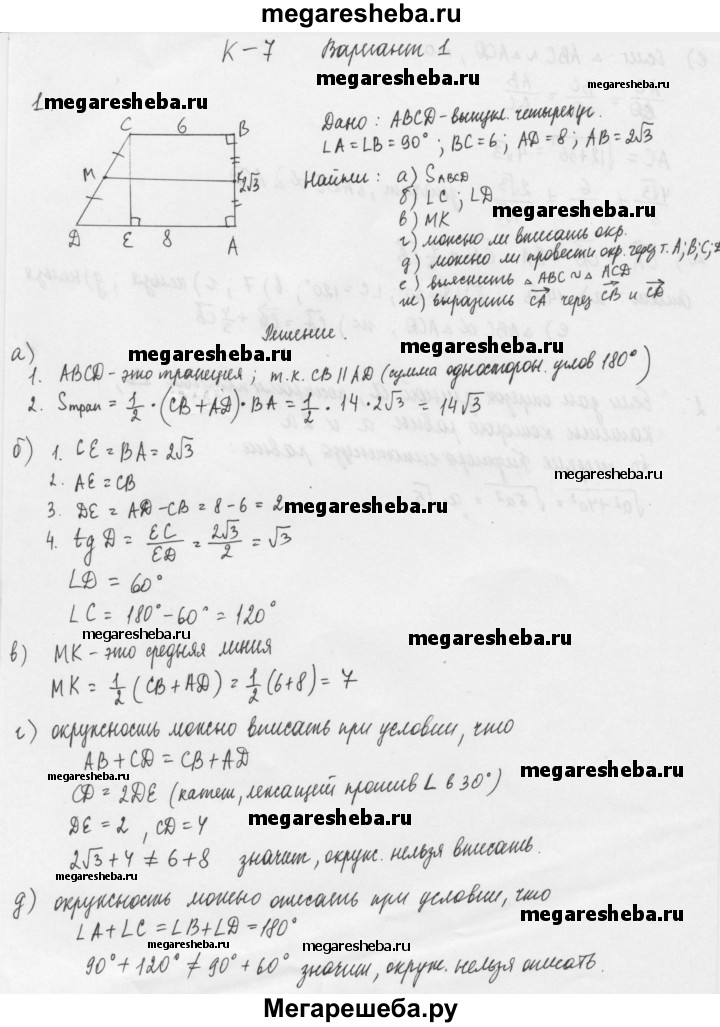 megaresheba.ru
К – 7 Вариант 1
1.
C 6 B
M K 2√3
D E 8 A
Дано: ABCD – выпукл. четырехуг.
∠A = ∠B = 90°; BC = 6; AD = 8; AB = 2√3
Найти: а) S_ABCD
б) ∠C; ∠D
в) MK
г) можно ли вписать окр.
д) можно ли провести окр. через т. A; B; C; D
е) выяснить △ABC ∾ △ACD
ж) выразить CA через CB и CD
Решение.
а)
1. ABCD – это трапеция; т.к. CB || AD (сумма односторон. углов 180°)
2. Sтрап = 1/2 · (CB + AD) · BA = 1/2 · 14 · 2√3 = 14√3
б) 1. CE = BA = 2√3
2. AE = CB
3. DE = AD – CB = 8 – 6 = 2
4. tg D = EC/ED = 2√3/2 = √3
∠D = 60°
∠C = 180° – 60° = 120°
в) MK – это средняя линия
MK = 1/2 (CB + AD) = 1/2 (6 + 8) = 7
г) окружность можно вписать при условии, что
AB + CD = CB + AD
CD = 2DE (катет, лежащий против ∠ в 30°)
DE = 2, CD = 4
2√3 + 4 ≠ 6 + 8 значит, окруж. нельзя вписать.
д) окружность можно описать при условии, что
∠A + ∠C = ∠B + ∠D = 180°
90° + 120° ≠ 90° + 60° значит, окруж. нельзя описать.
Мегарешеба.ру